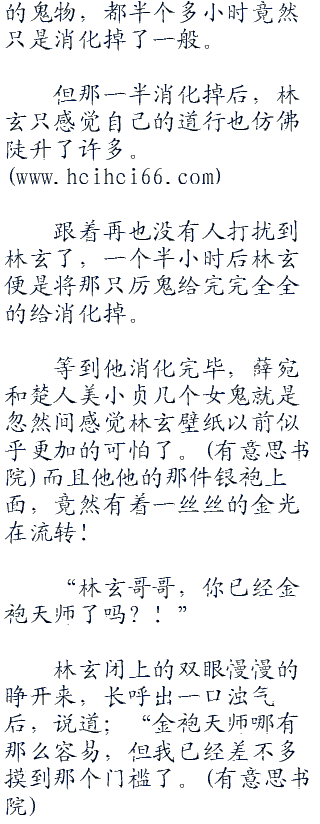 的鬼物，都半个多小时竟然
只是消化掉了一般。
但那一半消化掉后，林
玄只感觉自己的道行也仿佛
陡升了许多。
(www.hcihci66.com)
跟着再也没有人打扰到
林玄了，一个半小时后林玄
便是将那只厉鬼给完完全全
的给消化掉。
等到他消化完毕，薛宛
和楚人美小贞几个女鬼就是
忽然间感觉林玄壁纸以前似
乎更加的可怕了。(有意思书
院)而且他他的那件银袍上
面，竟然有着一丝丝的金光
在流转！
“林玄哥哥，你已经金
袍天师了吗？！”
林玄闭上的双眼慢慢的
睁开来，长呼出一口浊气
后，说道；“金袍天师哪有
那么容易，但我已经差不多
摸到那个门槛了。(有意思书
院)